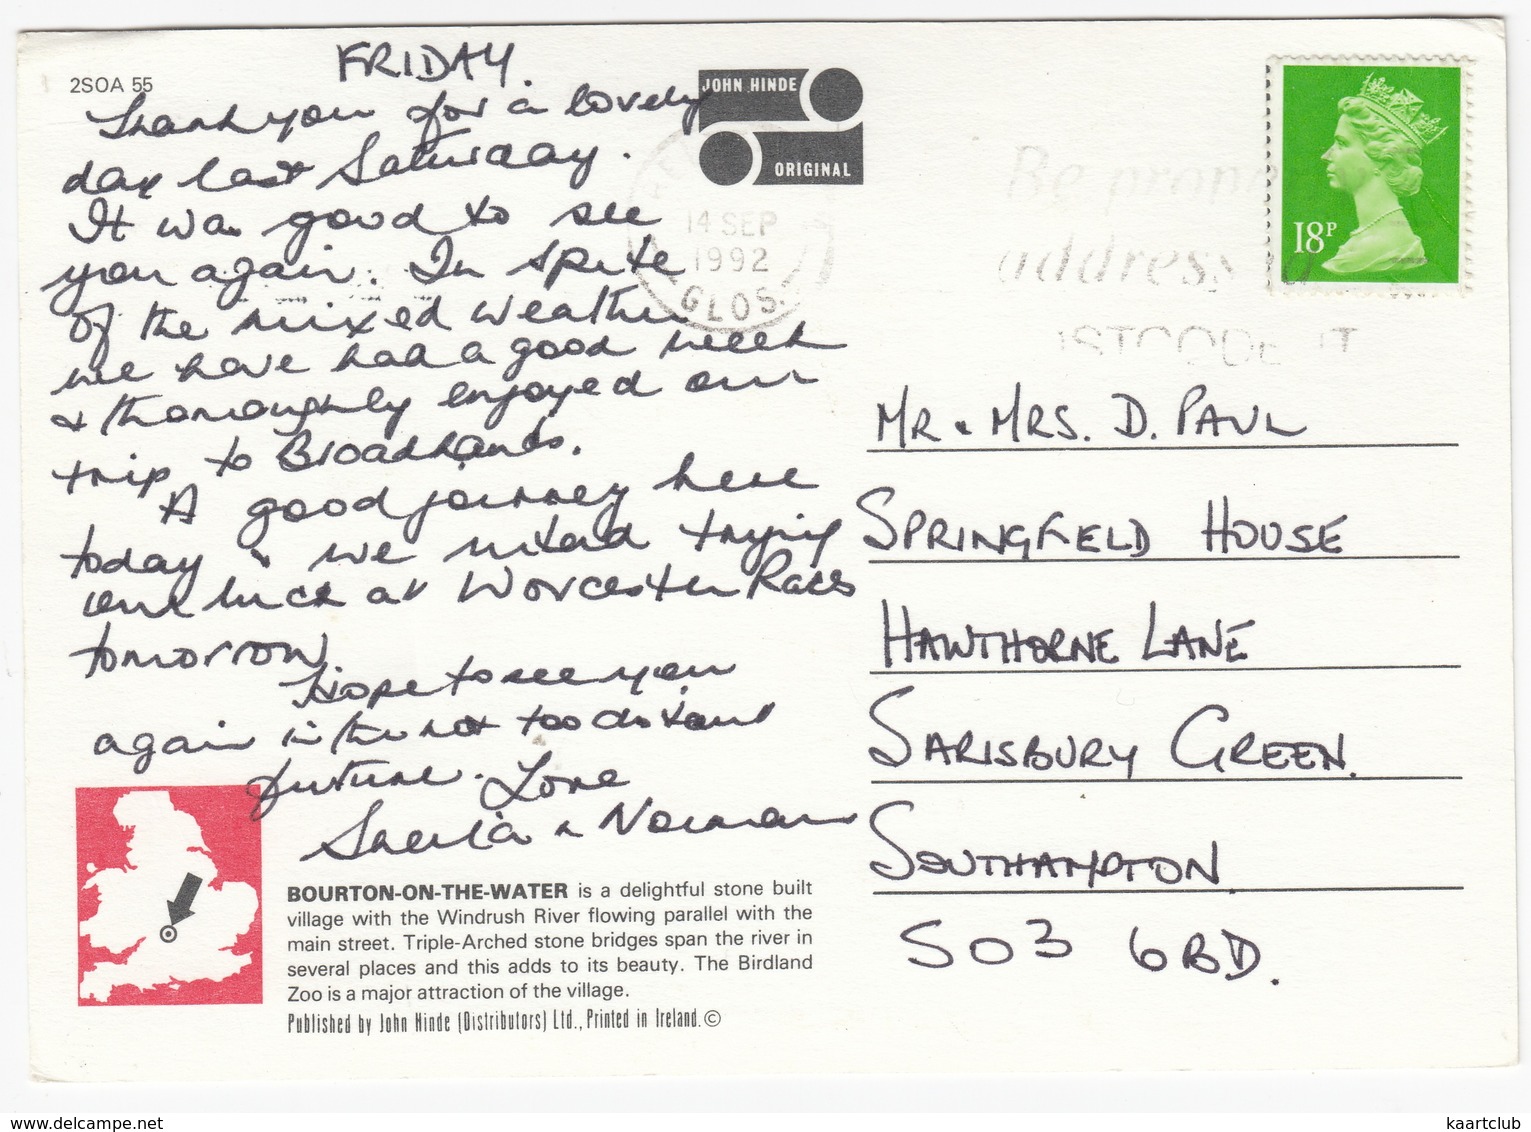 2SOA 55
FRIDAY.
Thank you for a lovely
day last Saturday.
It was good to see
you again. In spite
of the mixed weather
we have had a good week
& thoroughly enjoyed our
trip to Broadlands.
A good journey here
today & we intend trying
our luck at Worcester Races
tomorrow.
Hope to see you
again in the not too distant
future. Love
Sheila & Norman
JOHN HINDE
ORIGINAL
14 SEP
1992
GLOS.
Be
address
18P
MR & MRS. D. PAUL
SPRINGFIELD HOUSE
HAWTHORNE LANE
SARISBURY GREEN.
SOUTHAMPTON.
SO3 6BD.
BOURTON-ON-THE-WATER is a delightful stone built
village with the Windrush River flowing parallel with the
main street. Triple-Arched stone bridges span the river in
several places and this adds to its beauty. The Birdland
Zoo is a major attraction of the village.
Published by John Hinde (Distributors) Ltd., Printed in Ireland. ©
kaartclub
www.delcampe.net